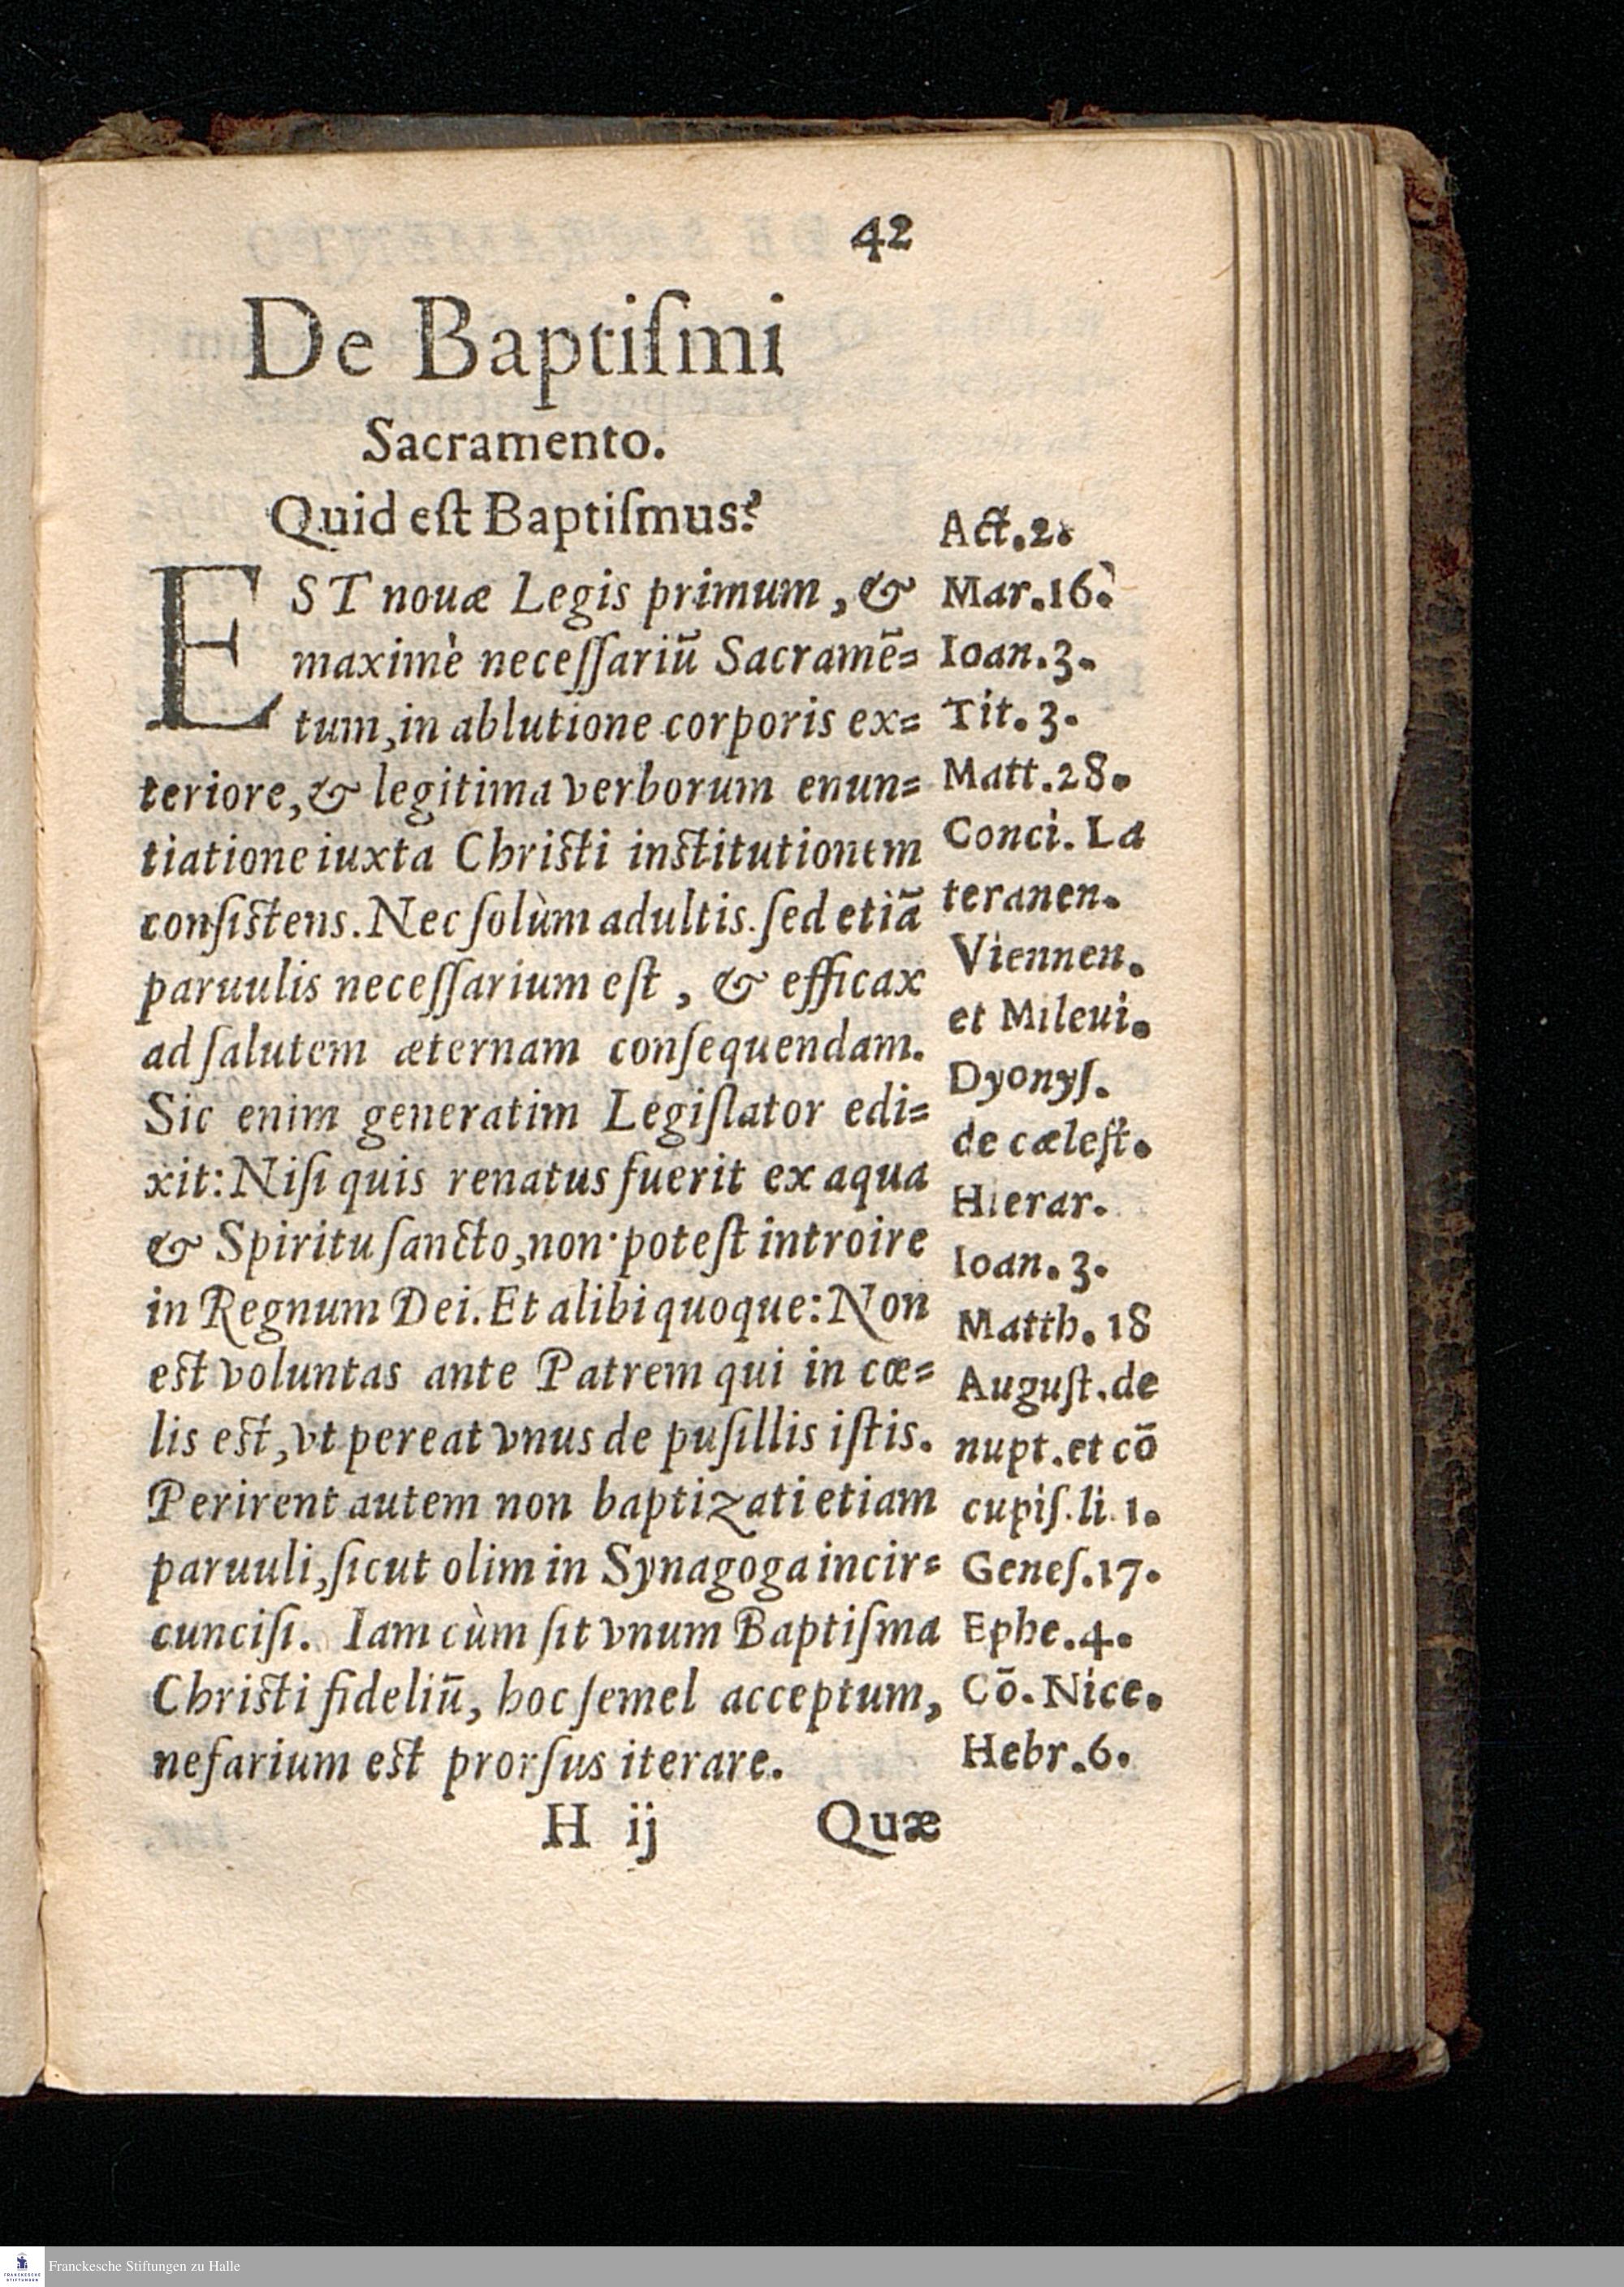 42
De Baptiſmi
Sacramento.
Quid eſt Baptiſmus?
EST nouæ Legis primum, &
maximè neceſſariū Sacramē=
tum, in ablutione corporis ex=
teriore, & legitima verborum enun=
tiatione iuxta Chriſti inſtitutionem
conſiſtens. Nec ſolùm adultis. ſed etiā
paruulis neceſſarium eſt, & efficax
ad ſalutem æternam conſequendam.
Sic enim generatim Legiſlator edi=
xit: Niſi quis renatus fuerit ex aqua
& Spiritu ſancto, non poteſt introire
in Regnum Dei. Et alibi quoque: Non
eſt voluntas ante Patrem qui in cœ=
lis eſt, vt pereat vnus de puſillis iſtis.
Perirent autem non baptizati etiam
paruuli, ſicut olim in Synagoga incir=
cunciſi. Iam cùm ſit vnum Baptiſma
Chriſti fideliū, hoc ſemel acceptum,
nefarium eſt prorſus iterare.
H ij Quæ
Act.2.
Mar.16.
Ioan.3.
Tit.3.
Matt.28.
Conci. La
teranen.
Viennen.
et Mileui.
Dyonyſ.
de cæleſt.
Hierar.
Ioan.3.
Matth.18
Auguſt.de
nupt.et cō
cupiſ.li.1.
Geneſ.17.
Ephe.4.
Cō.Nice.
Hebr.6.
FRANCKESCHE
STIFTUNGEN
Franckesche Stiftungen zu Halle